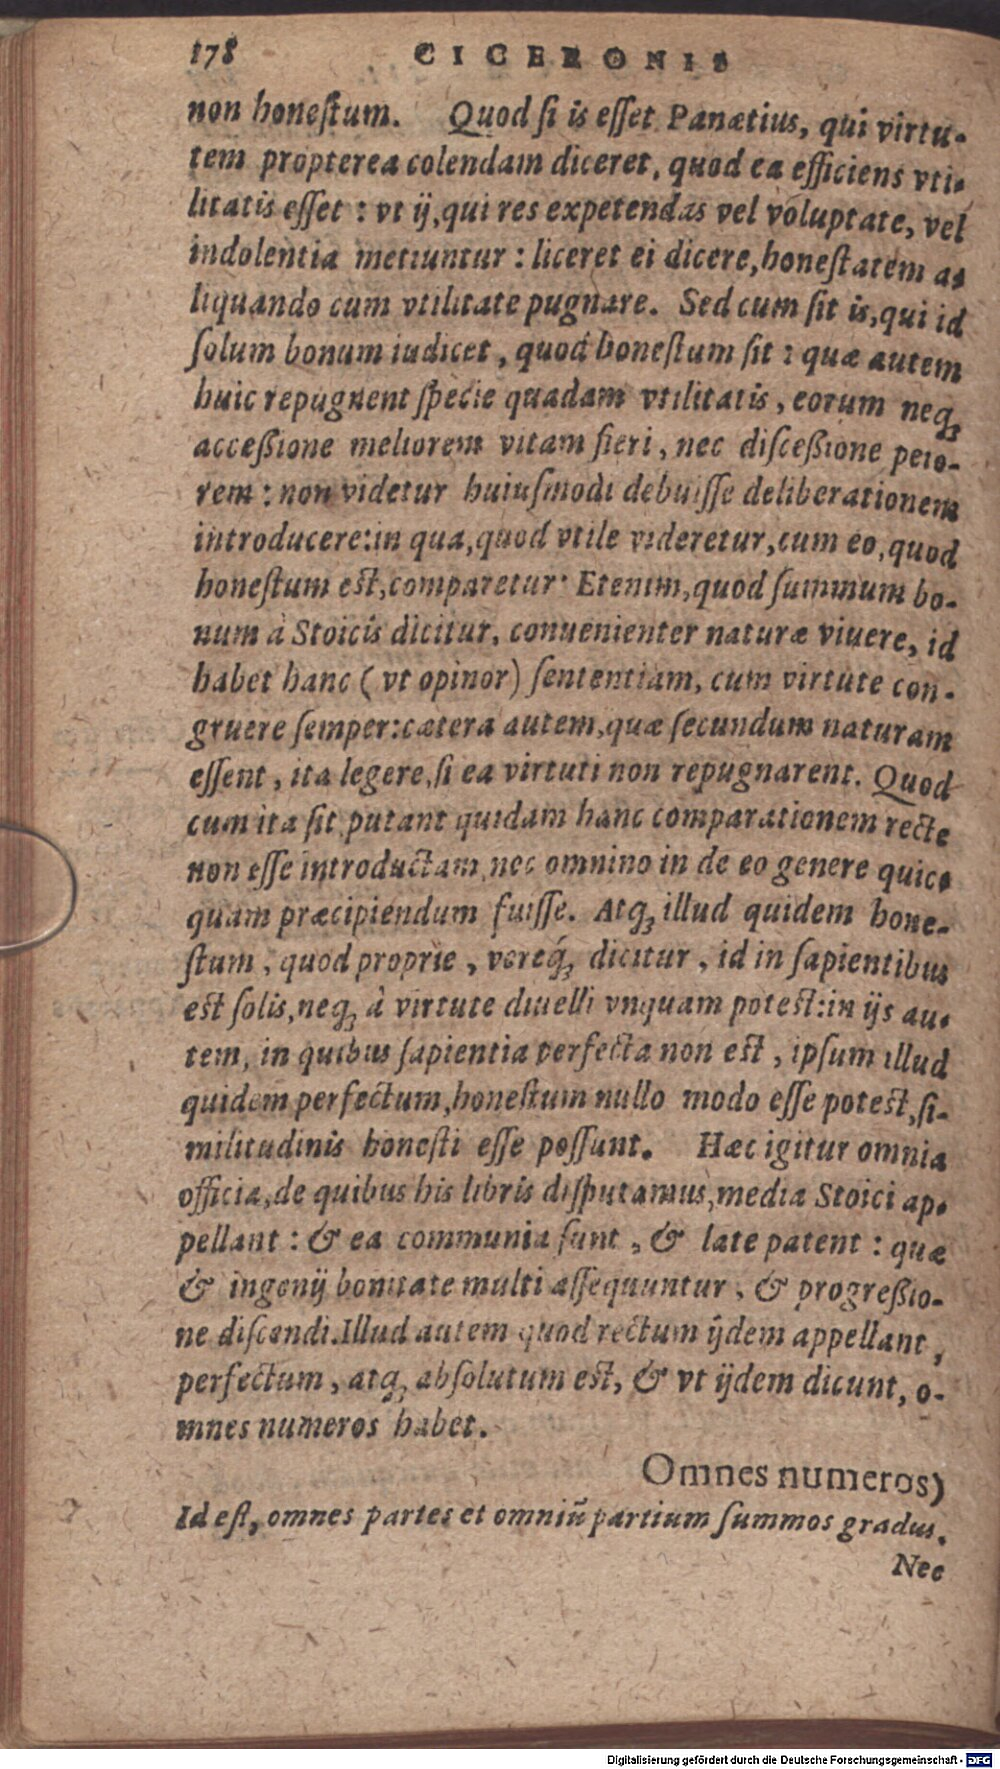 178 CICERONIS
non honeſtum. Quod ſi is eſſet Panætius, qui virtu-
tem propterea colendam diceret, quod ea efficiens vti-
litatis eſſet : vt ij, qui res expetendas vel voluptate, vel
indolentia metiuntur : liceret ei dicere, honeſtatem a-
liquando cum vtilitate pugnare. Sed cum ſit is, qui id
ſolum bonum iudicet, quod honeſtum ſit : quæ autem
huic repugnent ſpecie quadam vtilitatis, eorum neqꝫ
acceßione meliorem vitam fieri, nec diſceßione peio-
rem : non videtur huiuſmodi debuiſſe deliberationem
introducere: in qua, quod vtile videretur, cum eo, quod
honeſtum eſt, comparetur. Etenim, quod ſummum bo-
num à Stoicis dicitur, conuenienter naturæ viuere, id
habet hanc (vt opinor) ſententiam, cum virtute con-
gruere ſemper: cætera autem, quæ ſecundum naturam
eſſent, ita legere, ſi ea virtuti non repugnarent. Quod
cum ita ſit putant quidam hanc comparationem recte
non eſſe introductam, nec omnino in de eo genere quic-
quam præcipiendum fuiſſe. Atqꝫ illud quidem hone-
ſtum, quod proprie, vereq́ꝫ dicitur, id in ſapientibus
eſt ſolis, neqꝫ à virtute diuelli vnquam poteſt: in ijs au-
tem, in quibus ſapientia perfecta non eſt, ipſum illud
quidem perfectum, honeſtum nullo modo eſſe poteſt, ſi-
militudinis honeſti eſſe poſſunt. Hæc igitur omnia
officia, de quibus his libris diſputamus, media Stoici ap-
pellant : & ea communia ſunt, & late patent : quæ
& ingenij bonitate multi aſſequuntur, & progreßio-
ne diſcendi. Illud autem quod rectum ijdem appellant,
perfectum, atqꝫ abſolutum eſt, & vt ijdem dicunt, o-
mnes numeros habet.
Omnes numeros)
Id eſt, omnes partes et omniũ partium ſummos gradus.
Nec
Digitalisierung gefördert durch die Deutsche Forschungsgemeinschaft - DFG